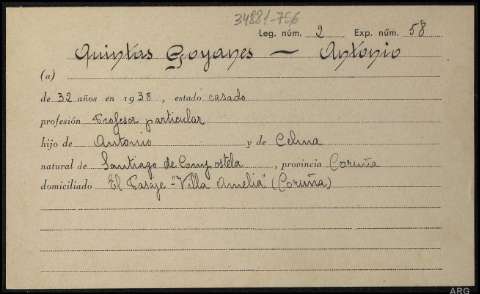 34881-756
Leg. núm. 2 Exp. núm. 58
Quintas Goyanes — Antonio
(a)
de 32 años en 1938, estado casado
profesión Profesor particular
hijo de Antonio y de Celina
natural de Santiago de Compostela, provincia Coruña
domiciliado El Pasaje - "Villa Amelia" (Coruña)
ARG